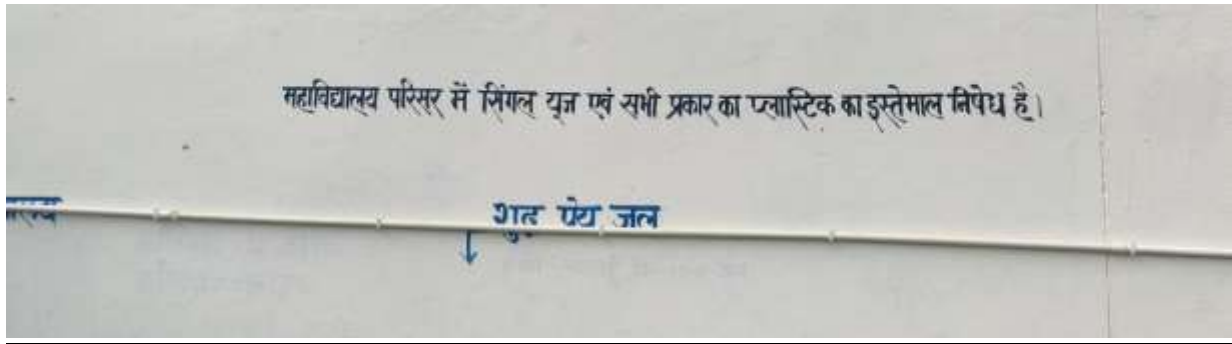 महाविद्यालय परिसर में सिंगल यूज एवं सभी प्रकार का प्लास्टिक का इस्तेमाल निषेध है।
शुद्ध पेय जल